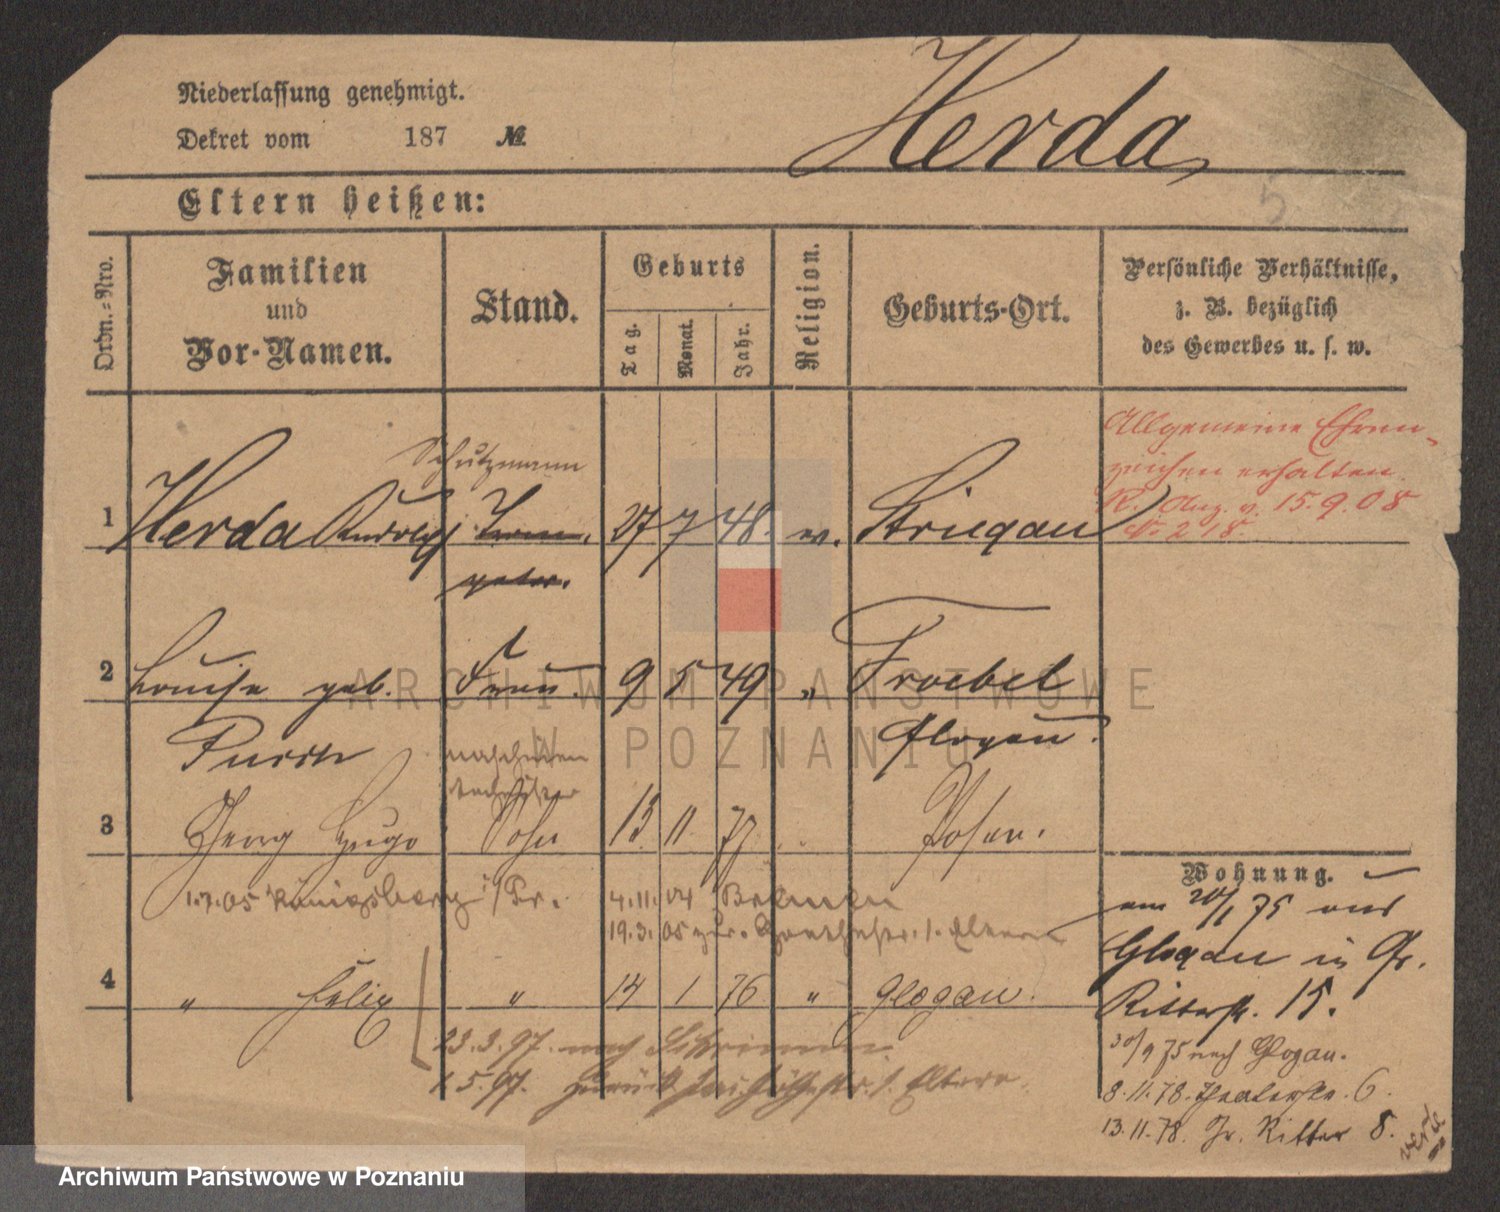 Niederlassung genehmigt.
Dekret vom 187 №
Herda
5
Eltern heißen:
Ordn.-Nro.
Familien
und
Vor-Namen.
Stand.
Geburts
Tag.
Monat.
Jahr.
Religion.
Geburts-Ort.
Persönliche Verhältnisse,
z. B. bezüglich
des Gewerbes u. s. w.
Allgemeine Ehren-
zeichen erhalten.
Schutzmann
1 Herda Rudolph 27 7 48. ev. Striegau
R. Anz. v. 15.9.08
No 218.
2 Louise geb. Frau. 9 5 49 " Froebel
Glogau.
3 Georg Hugo Sohn 13. 11. 77. Posen.
Wohnung.
1.7.05 Königsberg i/Pr. 4.11.04 Bremen
19.3.05 zur. Eltern
am 20/1 75 aus
Glogau in Gr.
Ritterstr. 15.
4 " Felix " 14 1 76 " Glogau.
23.3.97. nach Schrimm
1.5.97. zurück Eltern
30/9 75 nach Glogau.
8.11.78. Theaterstr. 6.
13.11.78. Gr. Ritter 8.
verte
ARCHIWUM PAŃSTWOWE
W POZNANIU
Archiwum Państwowe w Poznaniu